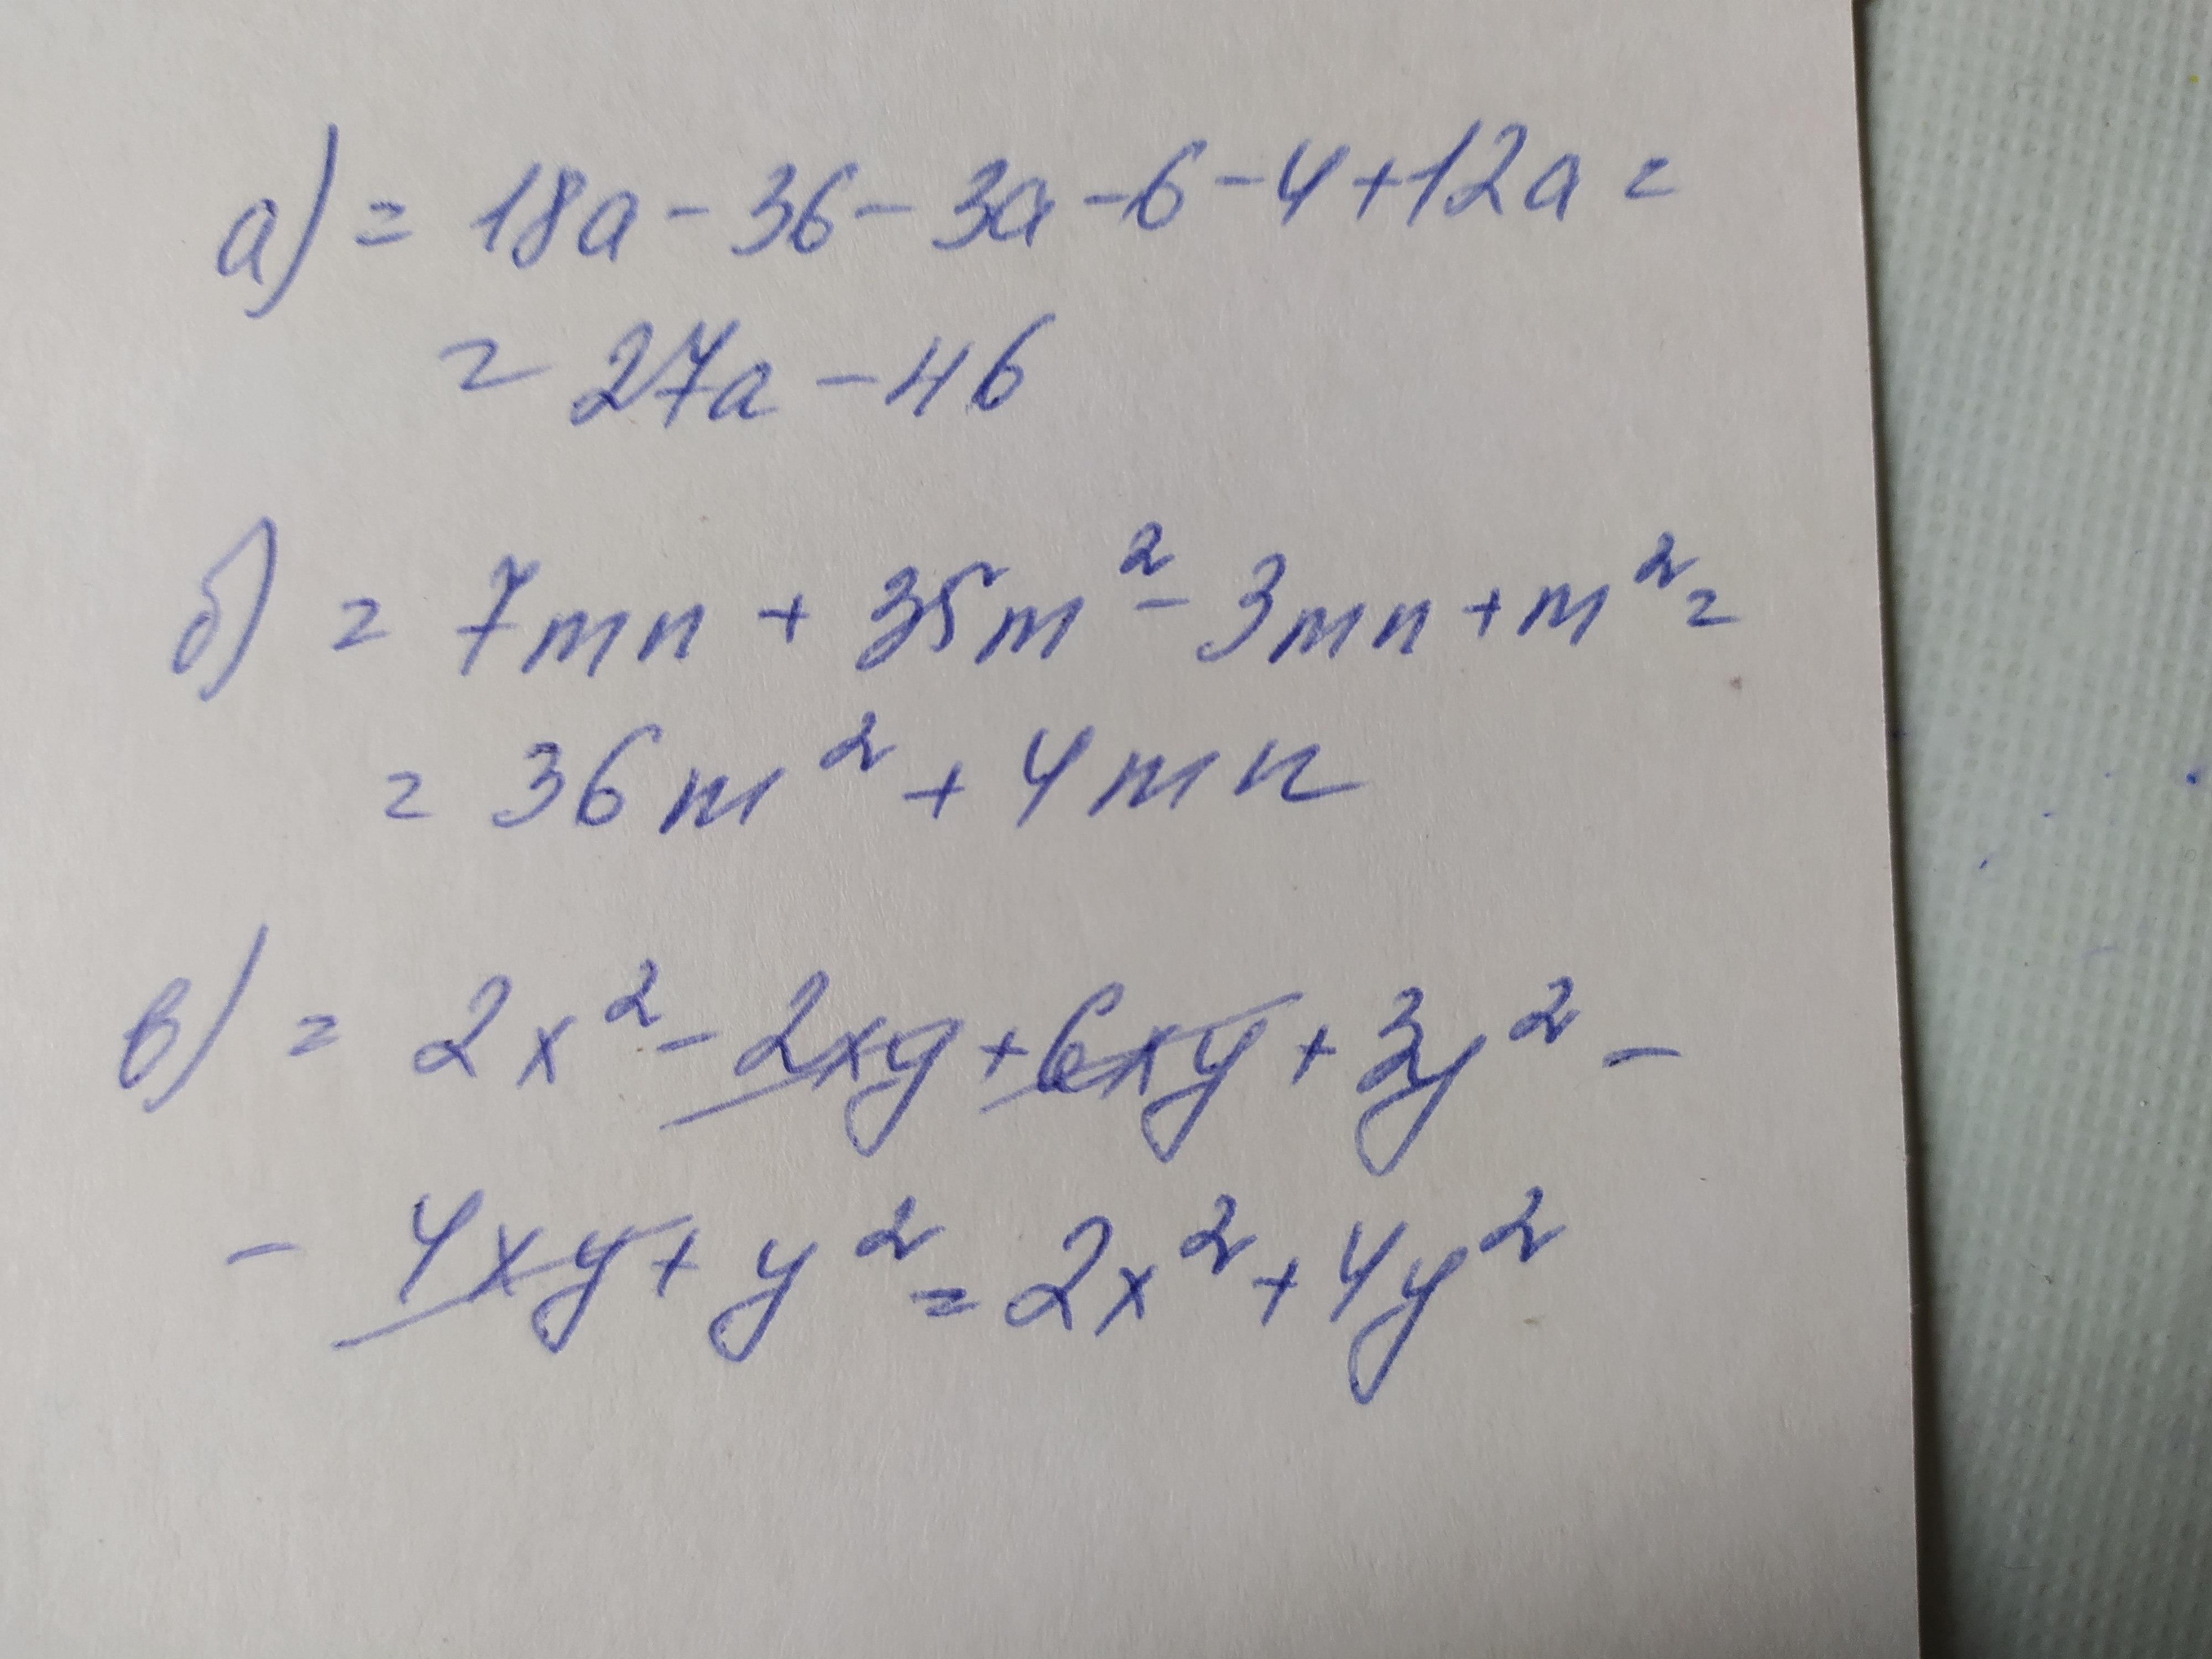 а) = 18a - 36 - 3a - 6 - 4 + 12a =
= 27a - 46
б) = 7mn + 35m² - 3mn + m² =
= 36m² + 4mn
в) = 2x² - 2xy + 6xy + 3y² -
- 4xy + y² = 2x² + 4y²